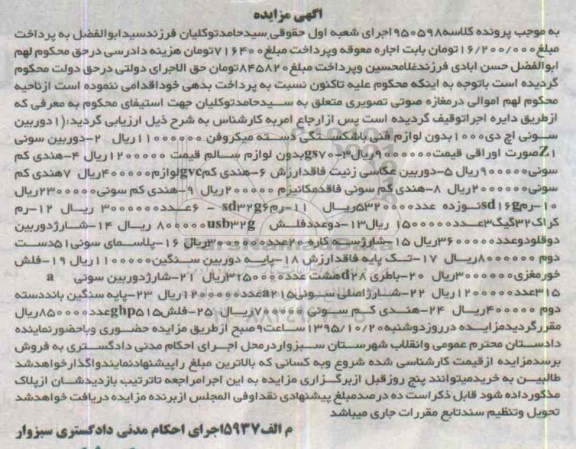 آگهی مزایده
به موجب پرونده کلاسه۹۵۰۵۹۸اجرای شعبه اول حقوقی سیدحامدتوکلیان فرزندسیدابوالفضل به پرداخت
مبلغ۱۶/۲۰۰/۰۰۰تومان بابت اجاره معوقه وپرداخت مبلغ۷۱۶۴۰۰تومان هزینه دادرسی درحق محکوم لهم
ابوالفضل حسن ابادی فرزندغلامحسین وپرداخت مبلغ۸۴۵۸۲۰تومان حق الاجرای دولتی درحق دولت محکوم
گردیده است باتوجه به اینکه محکوم علیه تاکنون نسبت به پرداخت بدهی خوداقدامی ننموده است ازناحیه
محکوم لهم اموالی درمغازه صوتی تصویری متعلق به سیدحامدتوکلیان جهت استیفای محکوم به معرفی که
ازطریق دایره اجراتوقیف گردیده است پس ازارجاع امربه کارشناس به شرح ذیل ارزیابی گردید:(۱دوربین
سونی اچ دی۱۰۰۰بدون لوازم فنی باشکستگی دسته میکروفن ۱۱۰۰۰۰۰۰ریال ۲-دوربین سونی
Z1صورت اوراقی قیمت۹۰۰۰۰۰۰ریال۳-gs۷۰بدون لوازم سالم قیمت ۱۲۰۰۰۰۰ریال ۴-هندی کم
سونی۹۰۰۰۰۰ریال ۵-دوربین عکاسی زنیت فاقدارزش ۶-هندی کمgvcلوازم۴۰۰۰۰۰ریال ۷هندی کم
سونی۲۰۰۰۰۰ریال ۸-هندی کم سونی فاقدمکانیزم ۲۰۰۰۰۰ریال ۹-هندی کم سونی۲۳۰۰۰۰۰ریال
۱۰-رمsd۱۶gنوزده عدد۵۳۲۰۰۰۰ریال۱۱-رمsd۳۲g۶ - ۶عدد۳۰۰۰۰۰۰ ریال ۱۲-رم
کراک۳۲گیگ۳عدد۱۵۰۰۰۰۰ ریال۱۳-دوعددفلش usb۳۲g ۸۰۰۰۰۰ ریال ۱۴-شارژدوربین
دوقلودوعدد۳۶۰۰۰۰ریال ۱۵-شارژسه کاره ۲۰عدد۳۰۰۰۰۰۰ریال ۱۶-پلاسمای سونی۵۱دست
دوم ۸۰۰۰۰۰۰ریال ۱۷-تک پایه فاقدارزش ۱۸-پایه دوربین سنگین۱۱۰۰۰۰۰ریال ۱۹-فلش
خورمغزی۳۰۰۰۰۰ریال ۲۰-باطری d۲۸هشت عدد۳۲۵۰۰۰۰ریال ۲۱-شارژدوربین سونی a
۳۱۵عدد۱۲۰۰۰۰۰ریال ۲۲-شارژاصلی سونی۲۱۵aعدد۱۲۰۰۰۰۰ریال ۲۳-پایه سنگین بانددسته
دوم ۴۰۰۰۰۰ریال ۲۴-هندی کم سونی ریال ۲۵-فلشghp۵۱۵عدد۸۵۰۰۰۰ریال
مقررگردیدمزایده درروزدوشنبه۱۳۹۵/۱۰/۲۰ساعت۹صبح ازطریق مزایده حضوری وباحضورنماینده
دادستان محترم عمومی وانقلاب شهرستان سبزواردرمحل اجرای احکام مدنی دادگستری به فروش
برسدمزایده ازقیمت کارشناسی شده شروع وبه کسانی که بالاترین مبلغ راپیشنهادنمایندواگذارخواهدشد
طالبین به خریدمیتوانند پنج روزقبل ازبرگزاری مزایده به این اجرامراجعه تاترتیب بازدیدشان ازپلاک
مذکورداده شود قابل ذکراست ده درصدمبلغ پیشنهادی نقداوفی المجلس ازبرنده مزایده دریافت خواهدشد
تحویل وتنظیم سندتابع مقررات جاری میباشد
م الف۵۹۳۷اجرای احکام مدنی دادگستری سبزوار